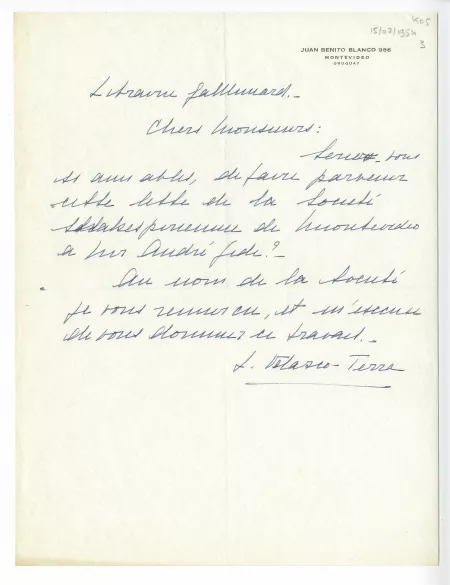 K05
15/07/1954
3
JUAN BENITO BLANCO 986
MONTEVIDEO
URUGUAY
Librairie Gallimard._
Chers Monsieurs:
Seriez-vous
si aimables, de faire parvenir
cette lettre de la Société
Shakespirienne de Montevideo
a Mr André Gide?_
Au nom de la Société
je vous remercie, et m'excuse
de vous donner ce travail._
L. Velasco-Terra